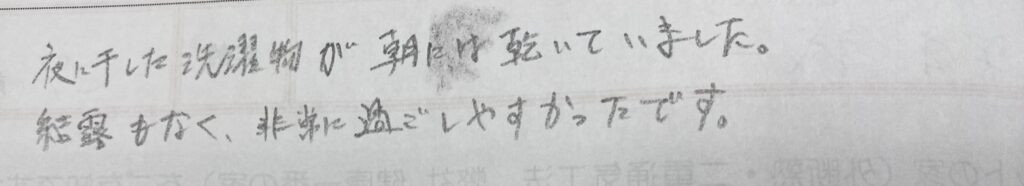 夜に干した洗濯物が朝には乾いていました。
結露もなく、非常に過ごしやすかったです。